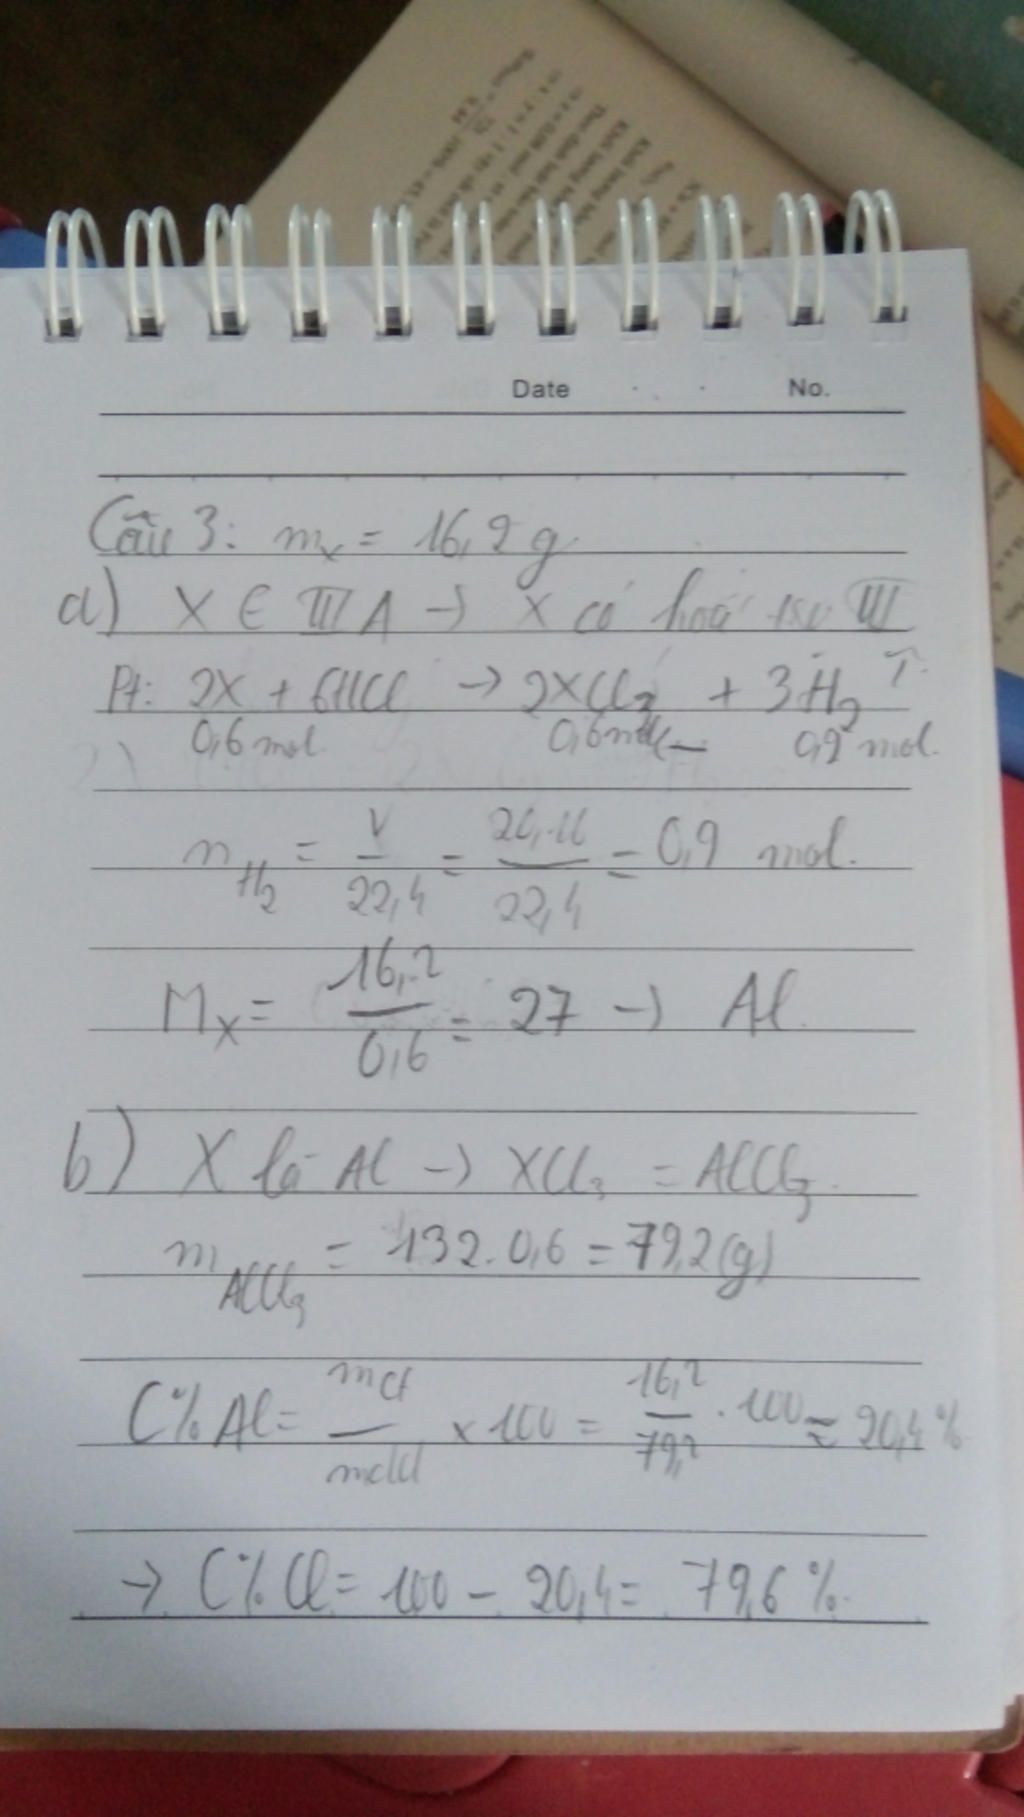 Date . . No.
Câu 3: mx = 16,2 g
a) X ∈ III A → X có hoá trị III
Pt: 2X + 6HCl → 2XCl3 + 3H2 ↑
0,6 mol 0,6 mol 0,9 mol.
nH2 = V/22,4 = 20,16/22,4 = 0,9 mol.
MX = 16,2/0,6 = 27 → Al
b) X là Al → XCl3 = AlCl3.
mAlCl3 = 132.0,6 = 79,2(g)
C%Al = mct/mdd × 100 = 16,2/79,2 . 100 ≈ 20,4%
→ C%Cl = 100 - 20,4 = 79,6%.